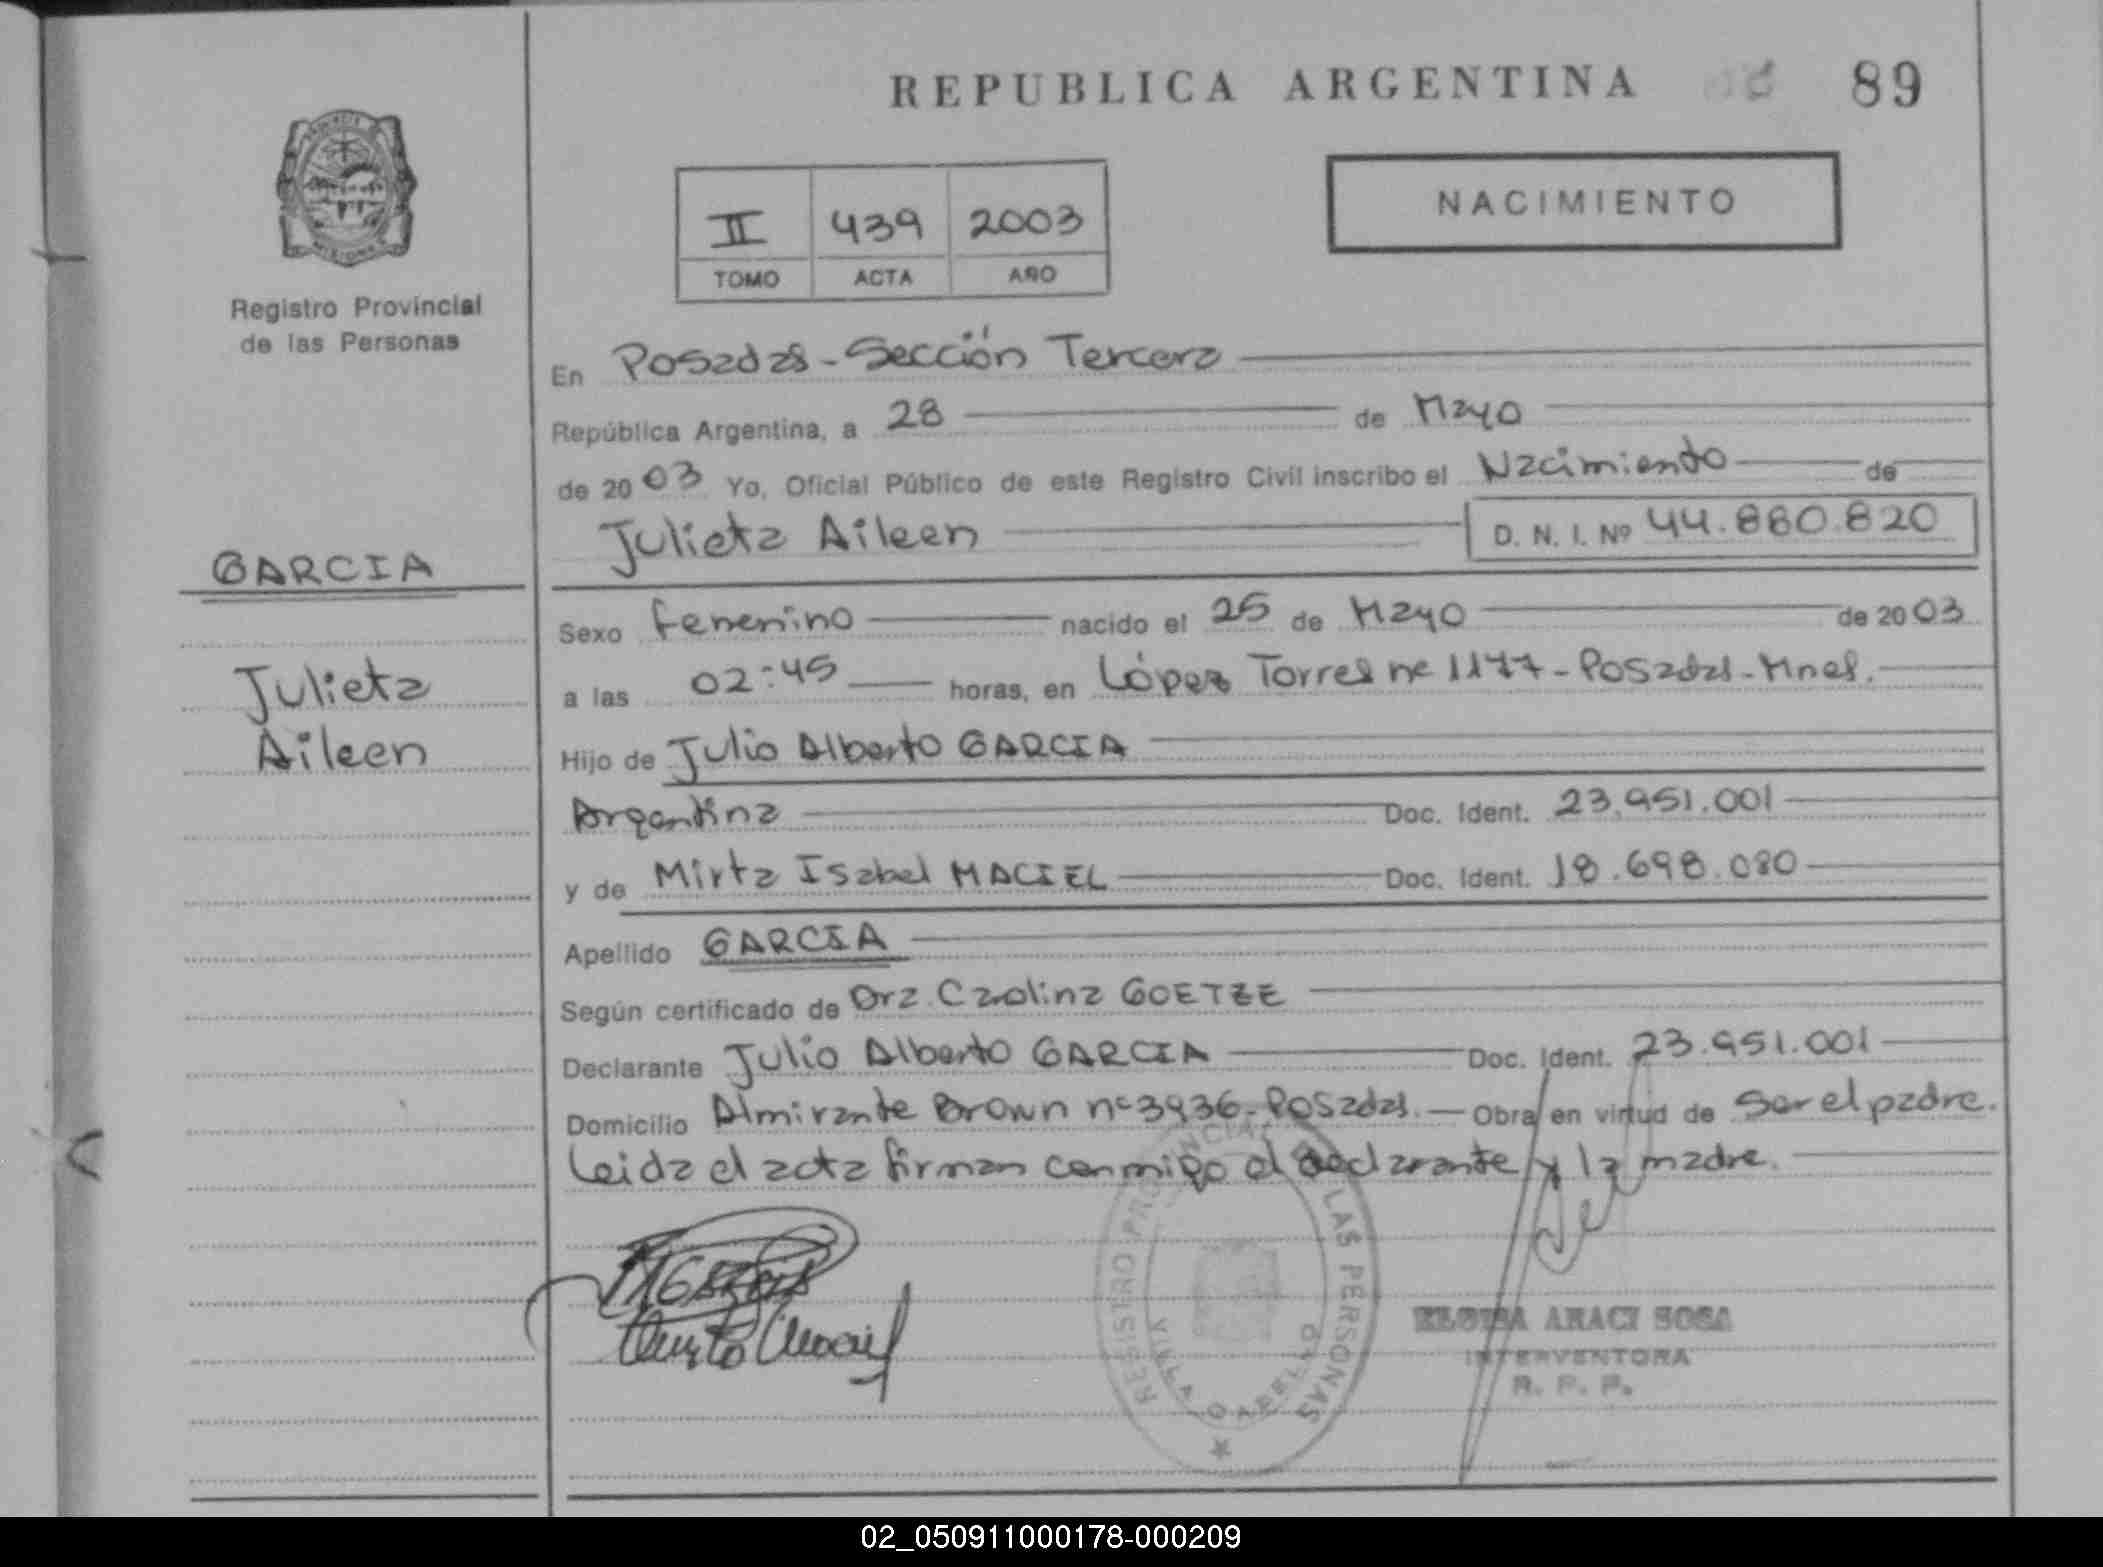 REPUBLICA ARGENTINA 89
NACIMIENTO
II 439 2003
TOMO ACTA AÑO
Registro Provincial
de las Personas
En Posadas - Sección Tercera
República Argentina, a 28 de Mayo
de 2003 Yo, Oficial Público de este Registro Civil inscribo el Nacimiento de
Julieta Aileen D. N. I. Nº 44.880.820
GARCIA
Julieta
Aileen
Sexo femenino nacido el 25 de Mayo de 2003
a las 02:45 horas, en López Torres nº 1177 - Posadas - Mnes.
Hijo de Julio Alberto GARCIA
Argentina Doc. Ident. 23.951.001
y de Mirta Isabel MACIEL Doc. Ident. 18.698.080
Apellido GARCIA
Según certificado de Dra. Carolina GOETZE
Declarante Julio Alberto GARCIA Doc. Ident. 23.951.001
Domicilio Almirante Brown nº 3936 - Posadas. Obra en virtud de Ser el padre.
Leida el acta firman conmigo el declarante y la madre.
REGISTRO PROVINCIAL LAS PERSONAS
VILLA
ARACI SOSA
INTERVENTORA
R. P. P.
02_050911000178-000209